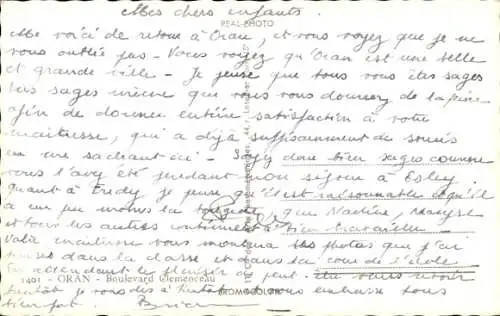 Mes chers enfants.
REAL-PHOTO
Me voici de retour à Oran, et vous voyez que je ne
vous oublie pas - Vous voyez qu'Oran est une belle
et grande ville - Je pense que tous vous êtes sages
très sages même que vous vous donnez de la peine
afin de donner entière satisfaction à votre
maîtresse, qui a déjà suffisamment de soucis
en me sachant ici - Soyez donc bien sages comme
vous l'avez été pendant mon séjour à
Quant à je pense qu'il est raisonnable et qu'il
a un peu moins la que Nadine, Maryse
et tous les autres continuent à bien travailler -
Votre maîtresse vous montrera les photos que j'ai
prises dans la classe et dans la cour de l'école
En attendant le plaisir de vous revoir
1401 - ORAN - Boulevard Clemenceau
bientôt je vous dis à bientôt et vous embrasse tous
bien fort.
BROMOCOLOR